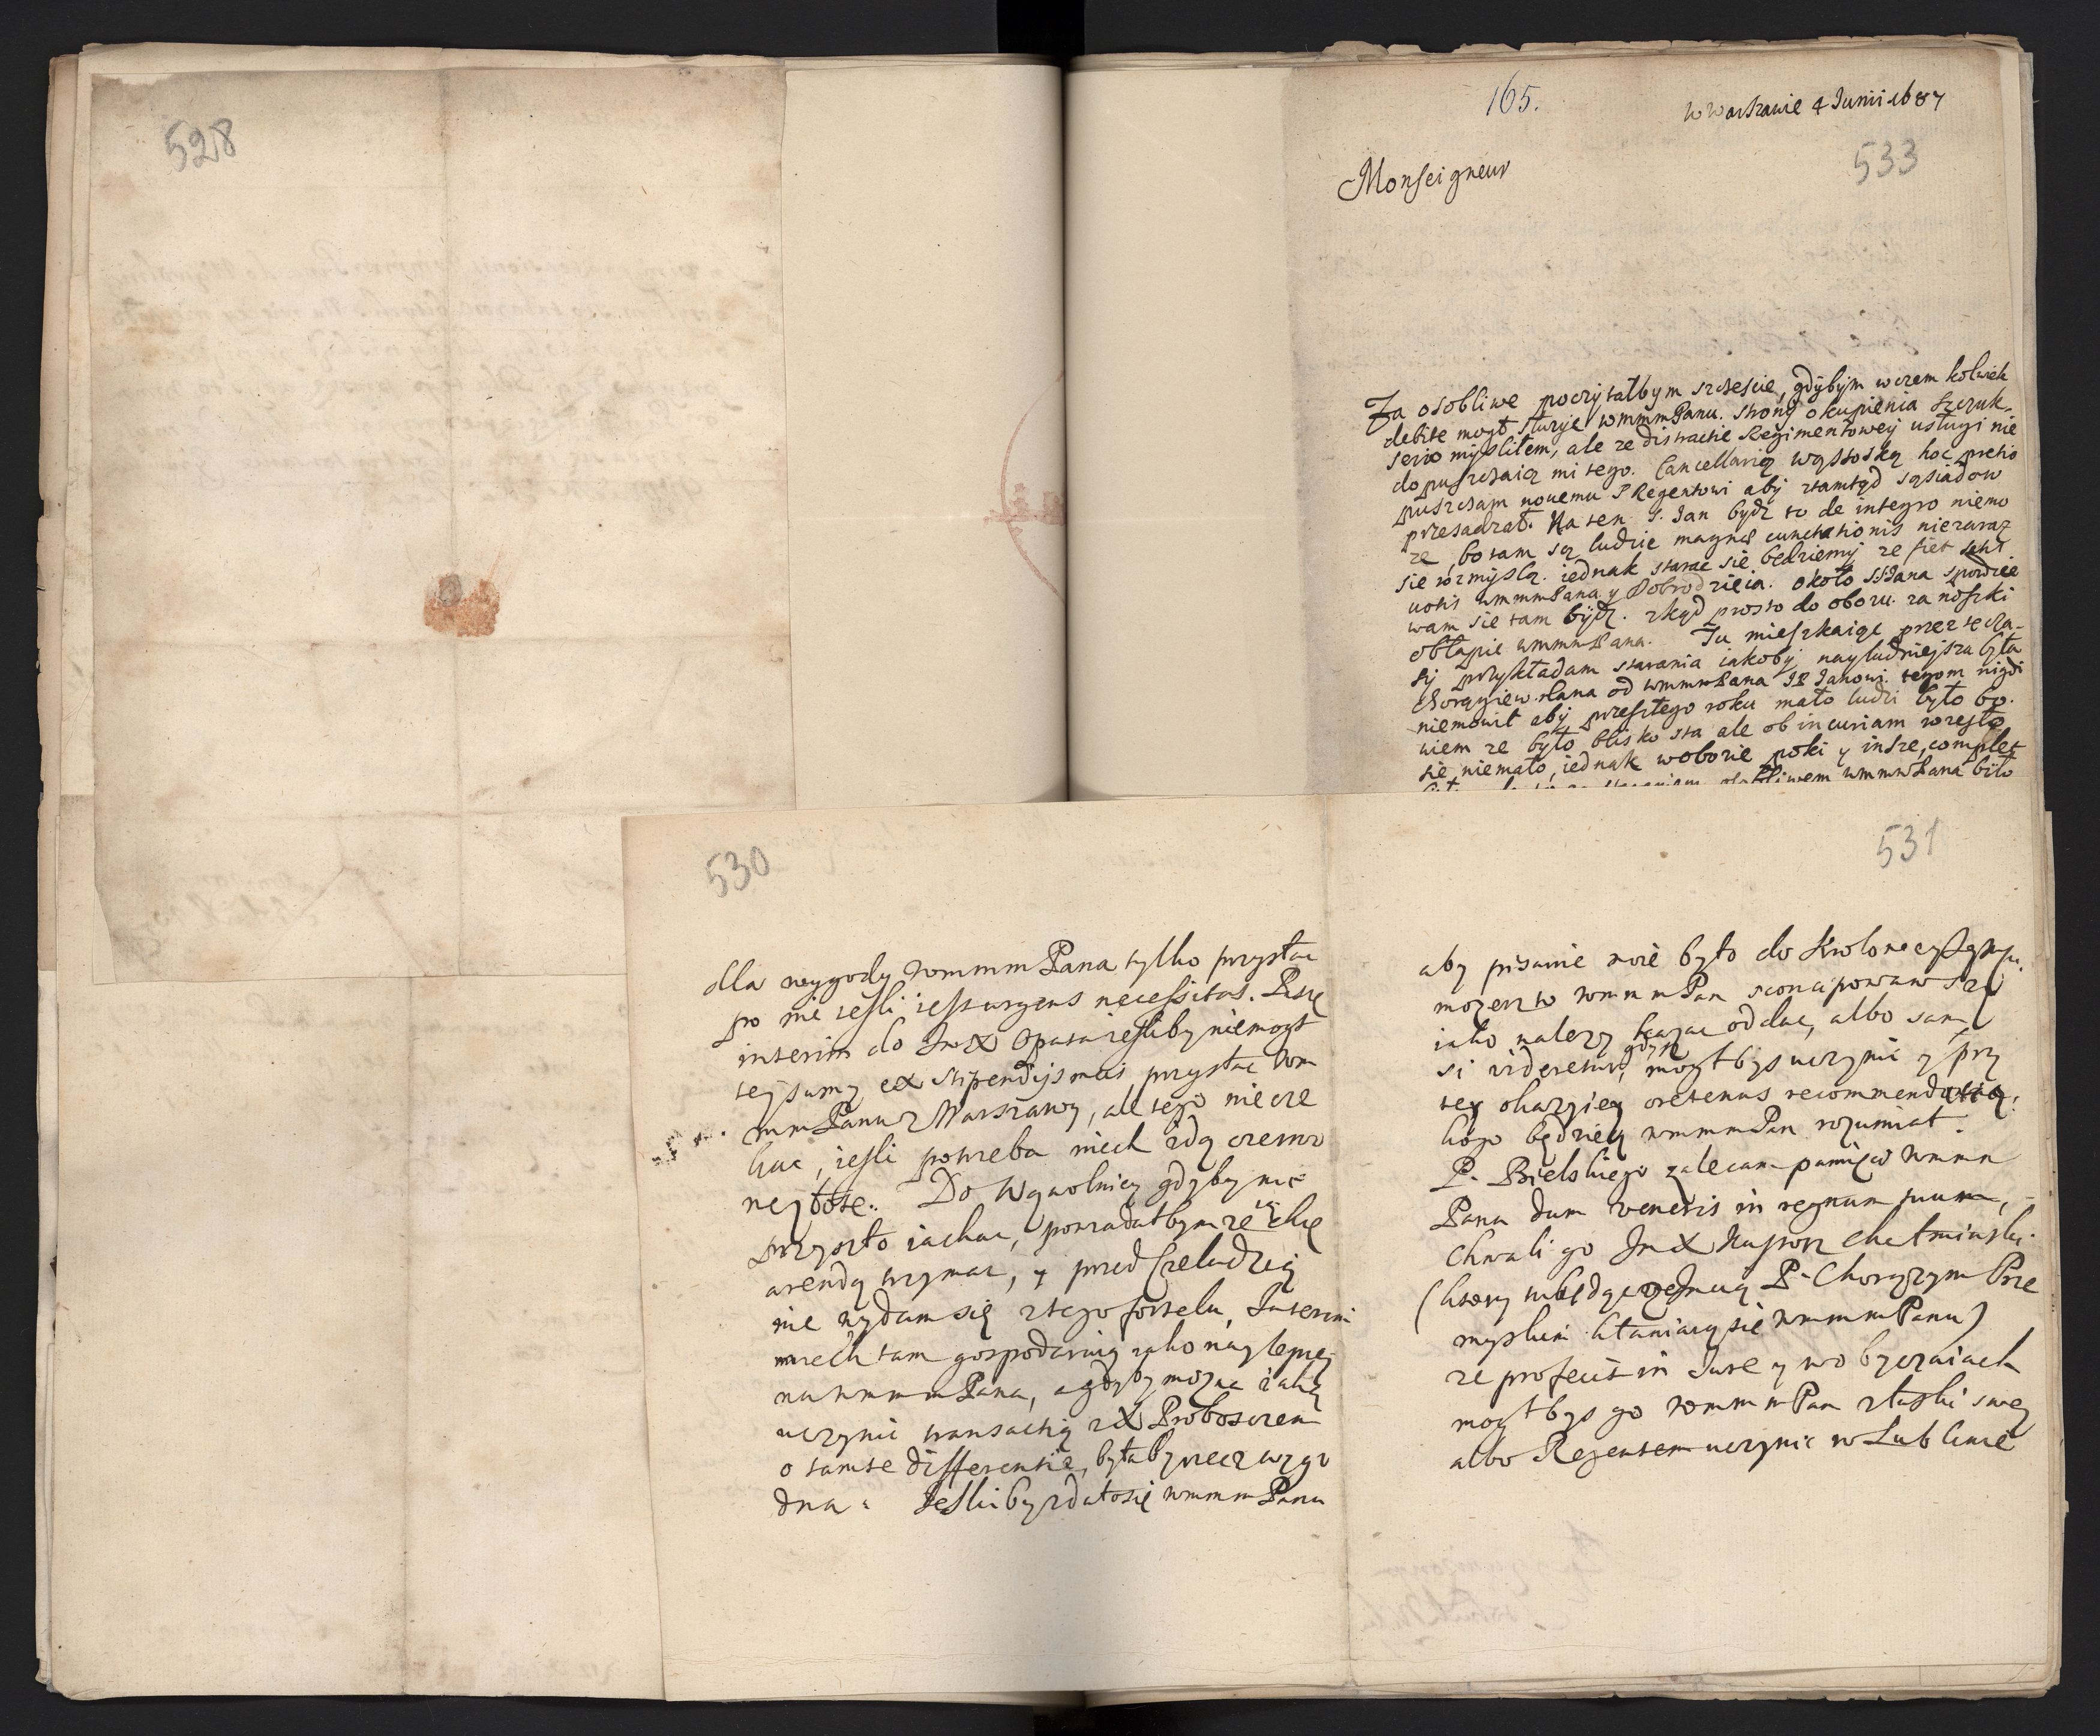 528
165.
w Warszawie 4 Junii 1687
533
Monseigneur
Za osobliwe poczytałbym szczescie, gdybym wczem kolwiek
debite mogł służyc wmmmPanu. strony okupienia szczuk
serio myslilem, ale ze distractie Regimentowey usługi nie
dopuszczaią mi tego. Cancellarią wąstoską hoc pretio
puszczam nouemu P Regentowi aby ztamtąd sąsiadow
przesadzał. Na ten S. Jan bydz to de integro niemo
ze, bo tam są ludzie magnæ cunctationis niezaraz
sie rozmyslą. iednak starac sie będziemy ze fiet
uotis wmmmPana y Dobrodzieia. około SJana spodzie
wam sie tam bydz. zkąd prosto do oboru za nożki
obłapie wmmmPana. Tu mieszkaiąc przez te cza-
sy przykładam starania iakoby nayludniejsza była
Chorągiew dana od wmmmPana JP Janowi. tegom nigdi
niemowił aby przeszłego roku mało ludzi było bo
wiem ze było blisko sta ale ob incuriam rozeszło
sie niemało, iednak w oborie poki y insze, complet
wmmmPana było
530
dla wygody wmmmPana tylko przysłac
po nie iesli iest urgens necessitas. Piszę
interim do JmX Opata iesliby niemogł
tey sumy ex stipendijs meis przysłac wm
mmPanu z Warszawy, ale tego nie cze
kac, iesli potrzeba niech idą czerwo
ne złote. Do Wąwolnicy gdyby nie
przyszło iachac, ponradałbym ze ią chcę
arendą trzymac, y przed Czeladzią
nie wydam się z tego fortelu, Interim
niech tam gospodarują iako naylepiej
na wmmmPana, a gdyby mozna iaką
uczynic transactią z X Proboszczem
o tamte differentie, byłaby rzecz wygo
dna. Jesliby zdało się wmmmPanu
531
aby pisanie moie było do Krolowey
mozesz to wmmmPan sconcipowawszy
iako nalezy kazac oddac, albo sam
si videretur, gdysz mogłbys uczynic y przy
tey okaziey oretenus recommendatią:
kogo będziesz wmmmPan rozumiał.
P. Bielskiego zalecam pamięci wmmm
Pana dum veneris in regnum tuum,
Chwali go JmX Kustosz chełminski
(ktory tu będąc ze Jmcią P. Chorązym Prze
myskim kłaniaią sie wmmmPanu)
ze profecit in Jure y w obyczaiach
mogłbys go wmmmPan z łaski swey
albo Regentem uczynic w Lublinie